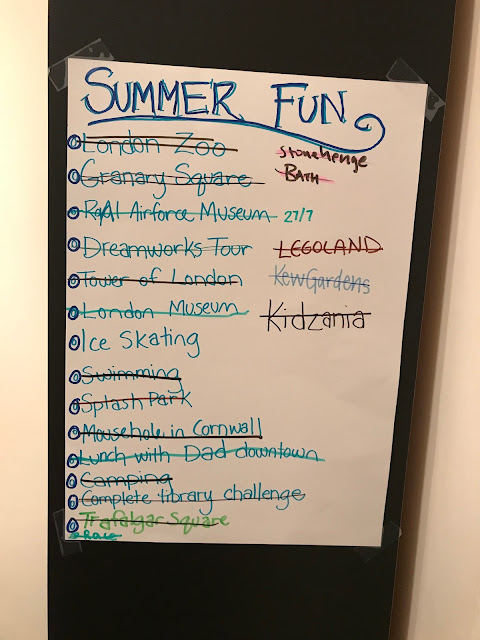 SUMMER FUN
London Zoo
Granary Square
Royal Airforce Museum 27/7
Dreamworks Tour
Tower of London
London Museum
Ice Skating
Swimming
Splash Park
Mousehole in Cornwall
Lunch with Dad downtown
Camping
Complete library challenge
Trafalgar Square
Stonehenge
BATH
LEGOLAND
Kew Gardens
Kidzania